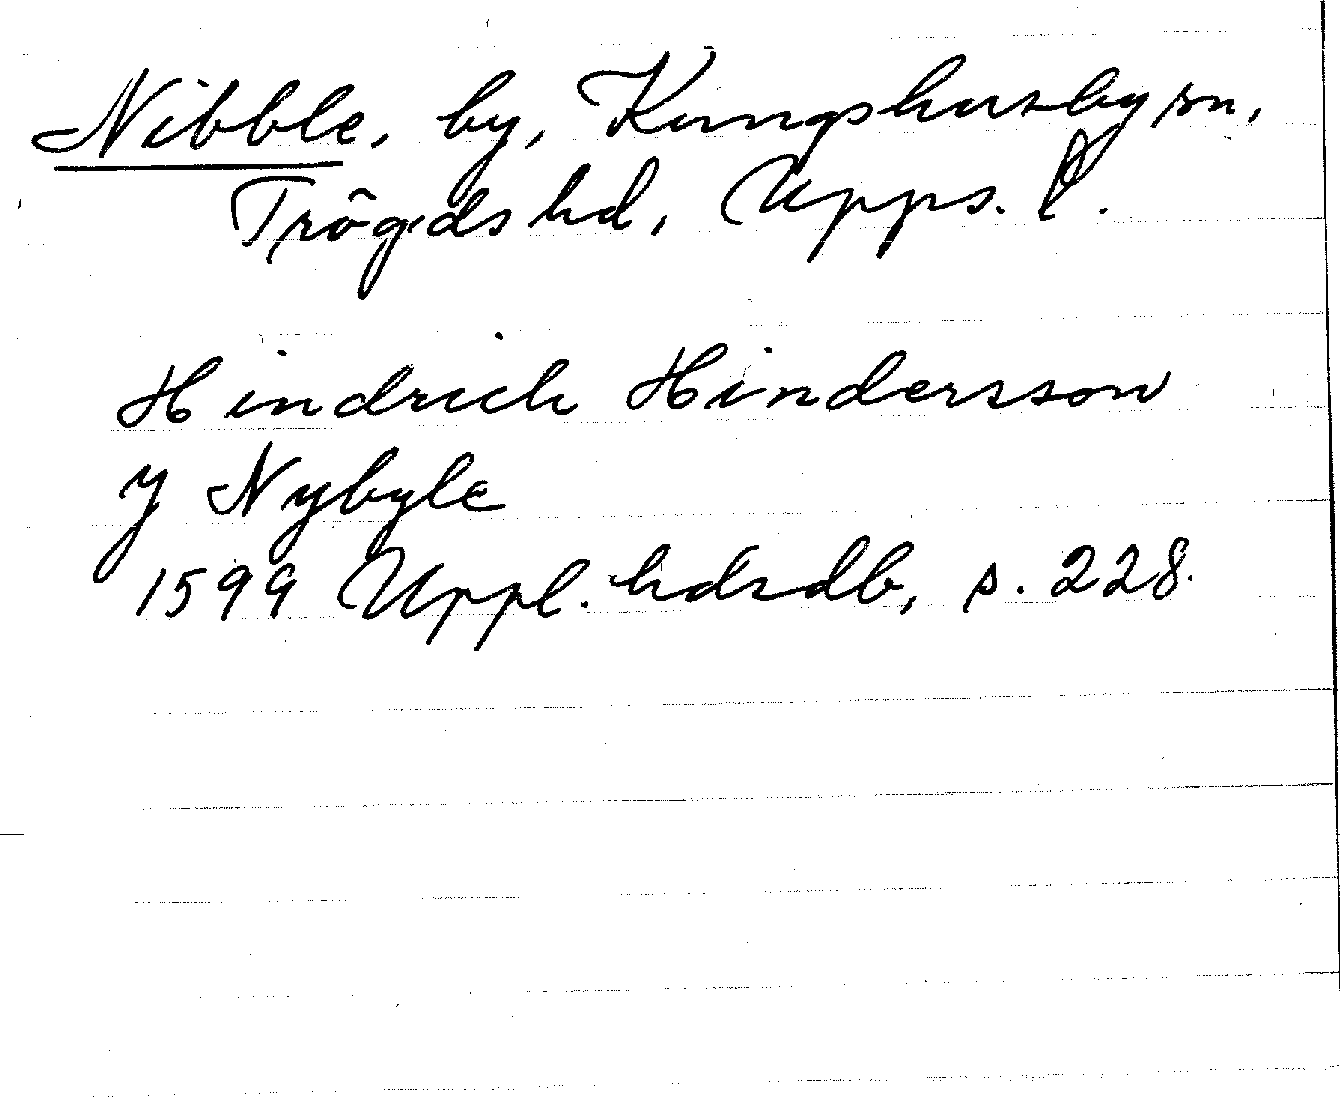 Nibble, by, Kungshusby sn,
Trögds hd, Upps. l.
Hindrich Hindersson
y Nybyle
1599 Uppl. hdsdb, s. 228.